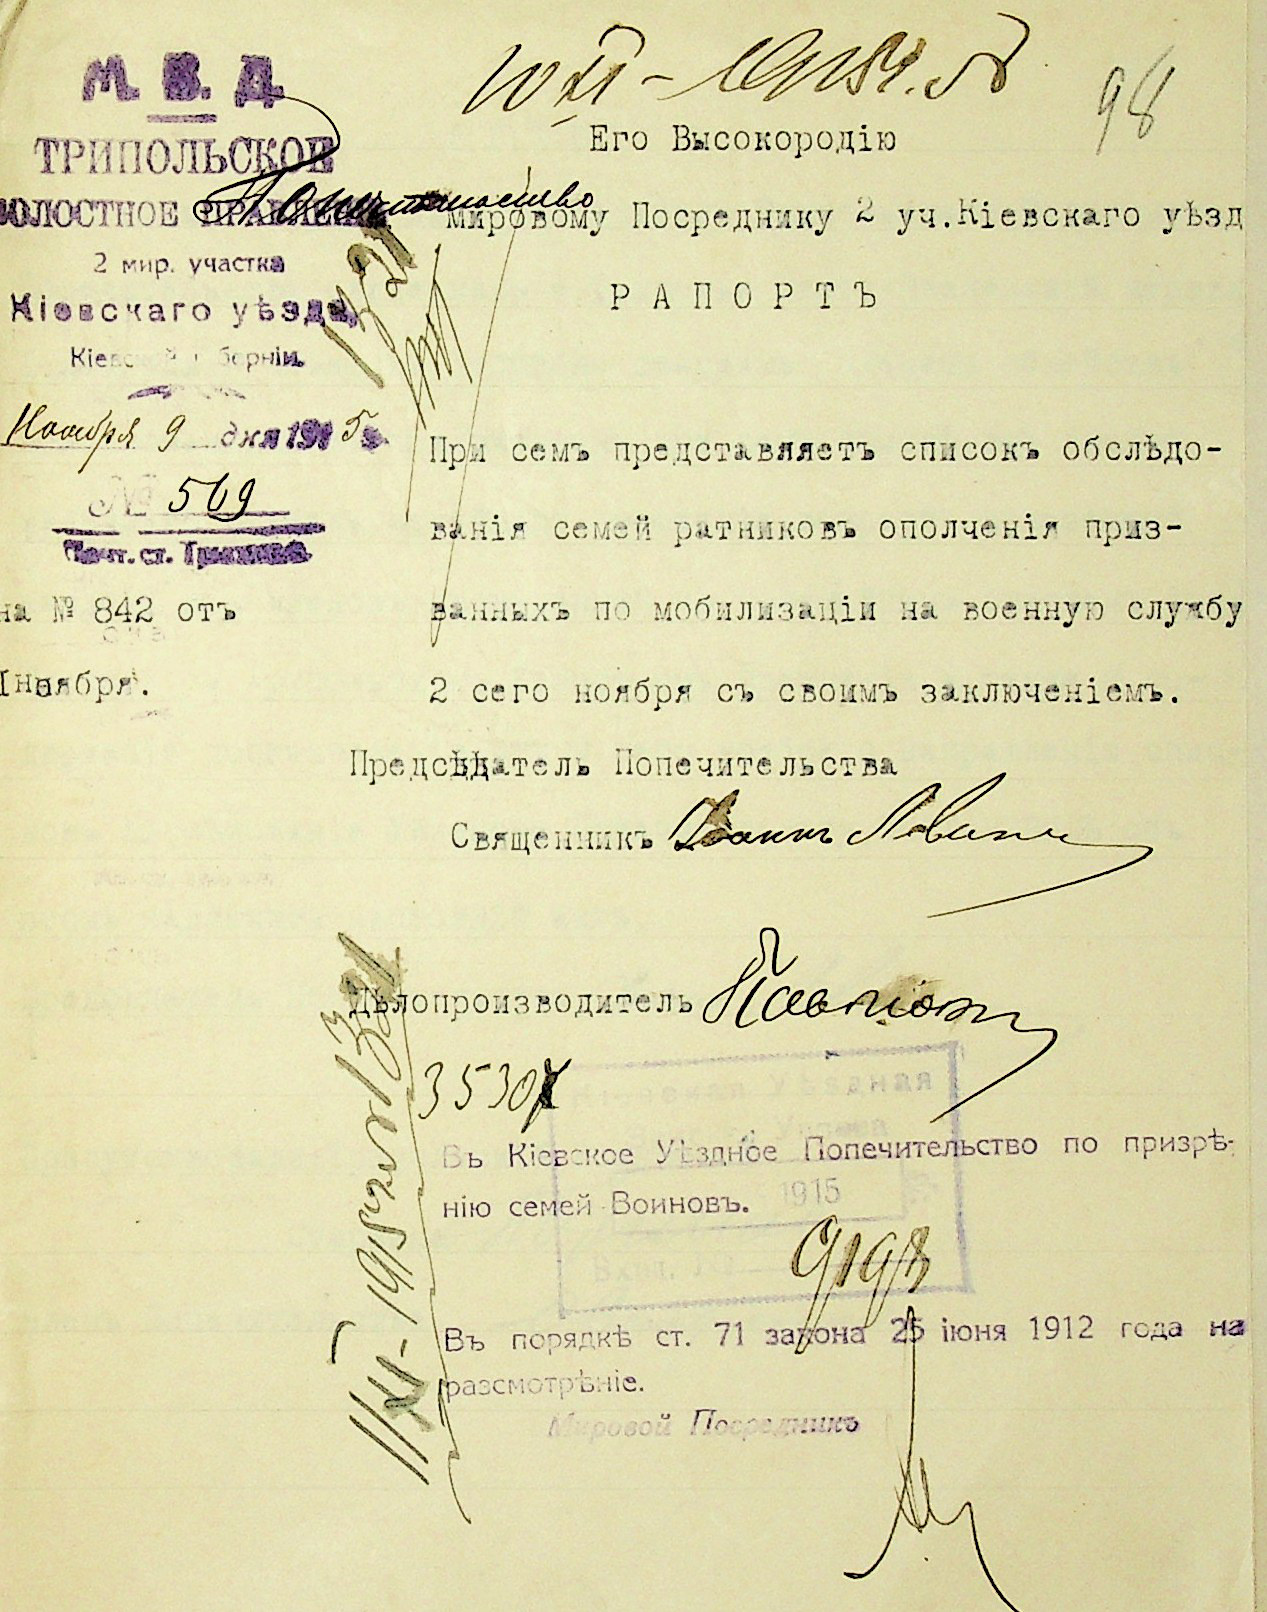 98
М. В. Д.
ТРИПОЛЬСКОЕ
ВОЛОСТНОЕ ПРАВЛЕНІЕ
Попечительство
2 мир. участка
Кіевскаго уѣзда,
Кіевской губерніи.
Ноября 9 дня 1915 г.
№ 569
Почт. ст. Триполье
на № 842 отъ
1нноября.
Его Высокородію
Мировому Посреднику 2 уч.Кіевскаго уѣзд
РАПОРТЪ
При семъ представляетъ списокъ обслѣдо-
ванія семей ратниковъ ополченія приз-
ванныхъ по мобилизаціи на военную службу
2 сего ноября съ своимъ заключеніемъ.
Предсѣдатель Попечительства
Священникъ Іоаннъ
Дѣлопроизводитель
3530
Кіевская Уѣздная
Управа
1915
Вход. №
Въ Кіевское Уѣздное Попечительство по призрѣ-
нію семей Воиновъ.
9198
Въ порядкѣ ст. 71 закона 25 іюня 1912 года на
разсмотрѣніе.
Мировой Посредникъ
11/XI - 1915